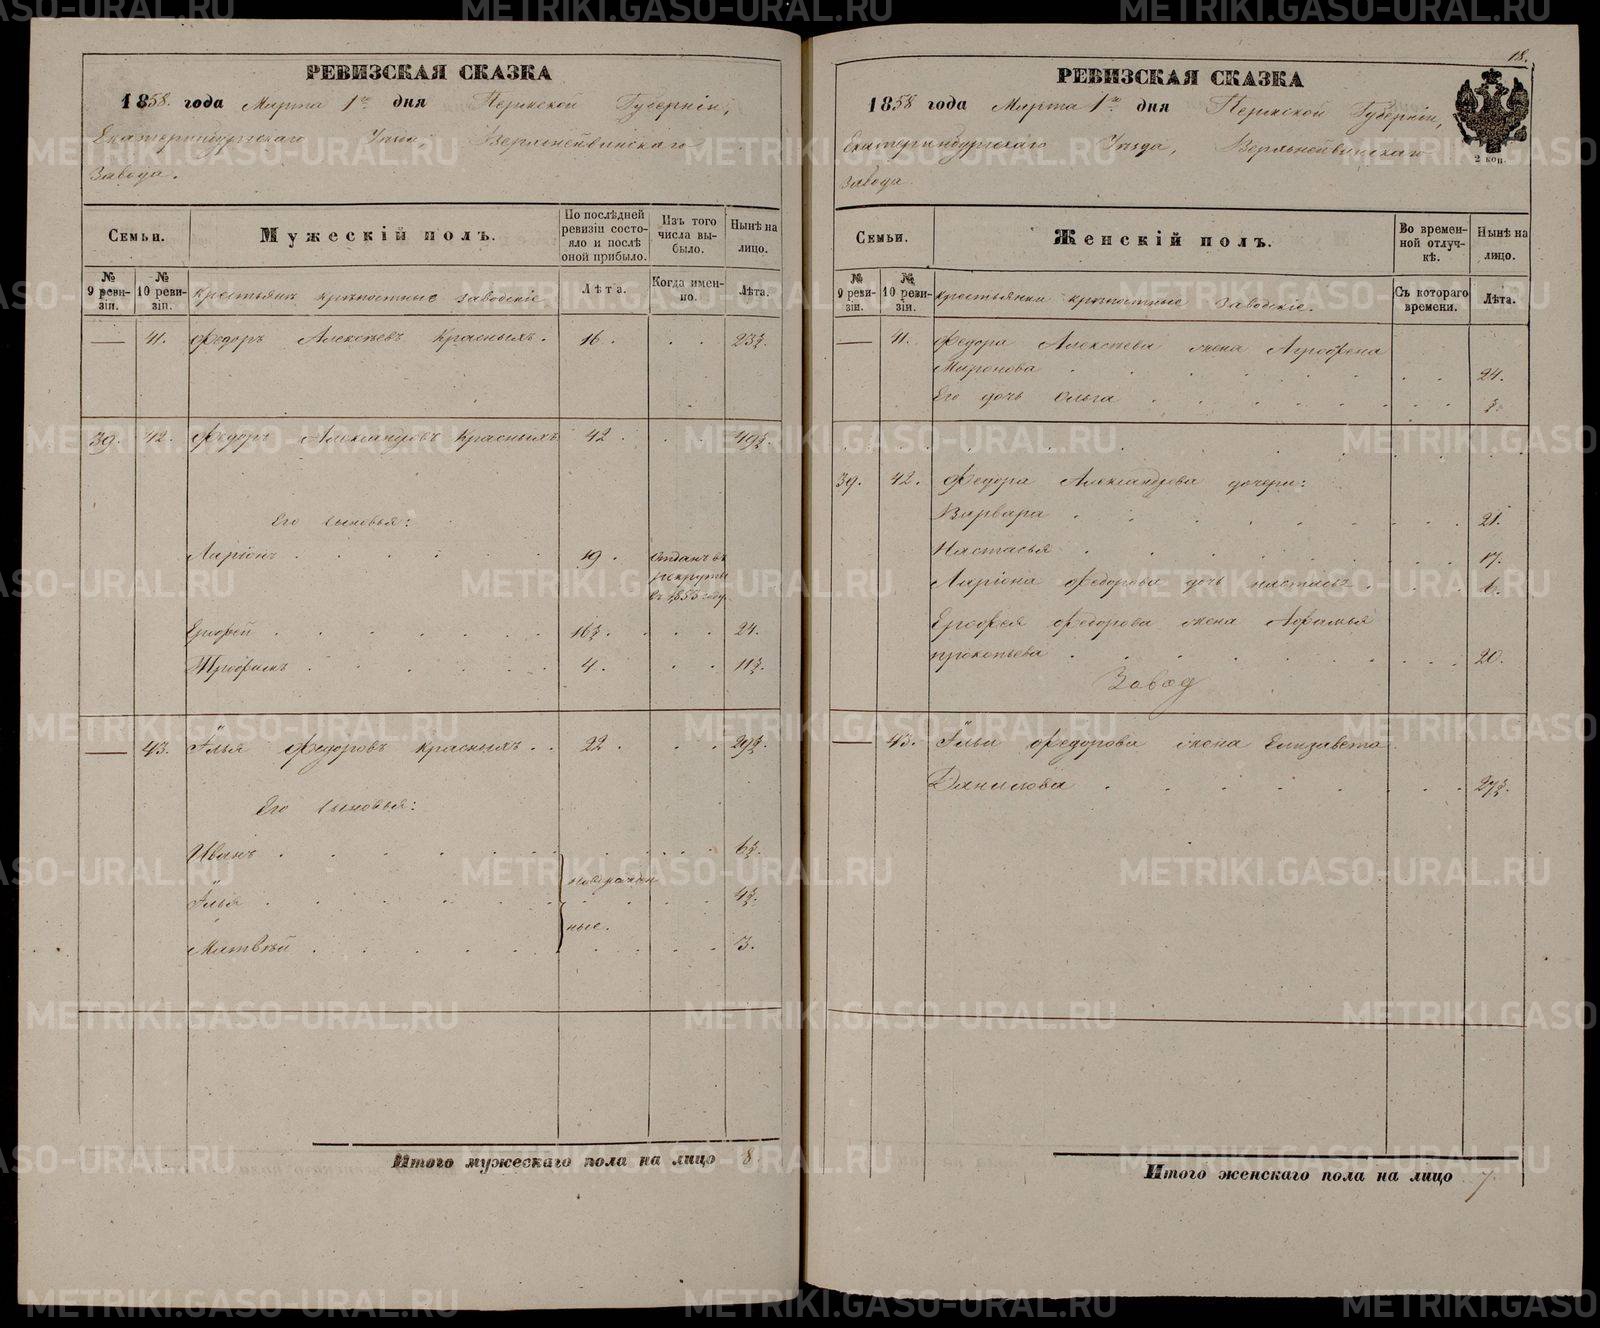 РЕВИЗСКАЯ СКАЗКА
1858. года Марта 1го дня Пермской Губерніи,
Екатеринбургскаго Уезда, Верхнейвинскаго
Завода.
Семьи.
Мужескій полъ.
По послѣдней ревизіи состояло и послѣ оной прибыло.
Изъ того числа выбыло.
Нынѣ на лицо.
№ 9 ревизіи.
№ 10 ревизіи.
крестьяне крѣпостные заводскіе
Лѣта.
Когда именно.
Лѣта.
— 41. Федоръ Алексѣевъ Красныхъ. 16. 23½.
39. 42. Федоръ Александровъ Красныхъ 42. 49½.
Его сыновья:
Ларіонъ 19. Отданъ въ
рекруты
въ 1853 году.
Ерофей 16½. 24.
Трофимъ 4. 11½.
— 43. Илья Федоровъ Красныхъ 22. 29½.
Его сыновья:
Иванъ 6½.
новорожден
Илья 4½.
ные.
Матвѣй 3.
Итого мужескаго пола на лицо 8.
18.
РЕВИЗСКАЯ СКАЗКА
1858 года Марта 1го дня Пермской Губерніи,
Екатеринбургскаго Уезда, Верхнейвинскаго
Завода
2 коп.
Семьи.
Женскій полъ.
Во временной отлучкѣ.
Нынѣ на лицо.
№ 9 ревизіи.
№ 10 ревизіи.
крестьянки крѣпостные заводскіе.
Съ котораго времени.
Лѣта.
— 41. Федора Алексѣева жена Агрофена
Миронова 24.
Его дочь Ольга ½.
39. 42. Федора Александрова дочери:
Варвара 21.
Настасья 17.
Ларіона Федорова дочь Настасья 6.
Ерофея Федорова жена Афимья
Прокопьева 20.
Завод
— 43. Ильи Федорова жена Елизавета
Данилова 27½.
Итого женскаго пола на лицо 7
METRIKI.GASO-URAL.RU